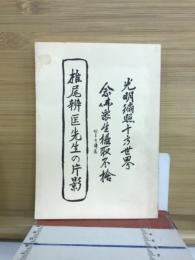 光明徧照十方世界
念佛衆生攝取不捨
椎尾辨匡先生の片影